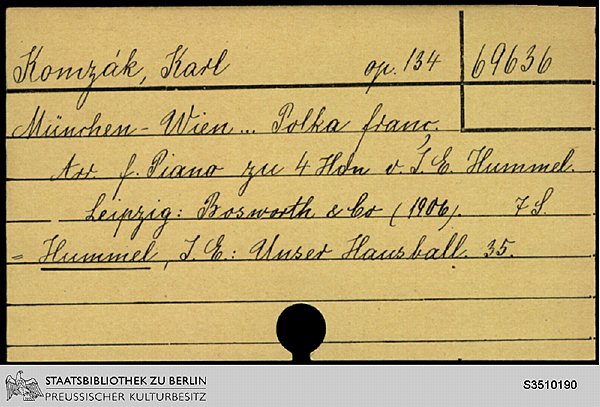 Komzák, Karl op. 134 69636
München-Wien... Polka franç.
Arr. f. Piano zu 4 Hdn v. J. E. Hummel.
Leipzig: Bosworth & Co (1906). 7 S.
= Hummel, J. E.: Unser Hausball. 35.
STAATSBIBLIOTHEK ZU BERLIN
PREUSSISCHER KULTURBESITZ
S3510190